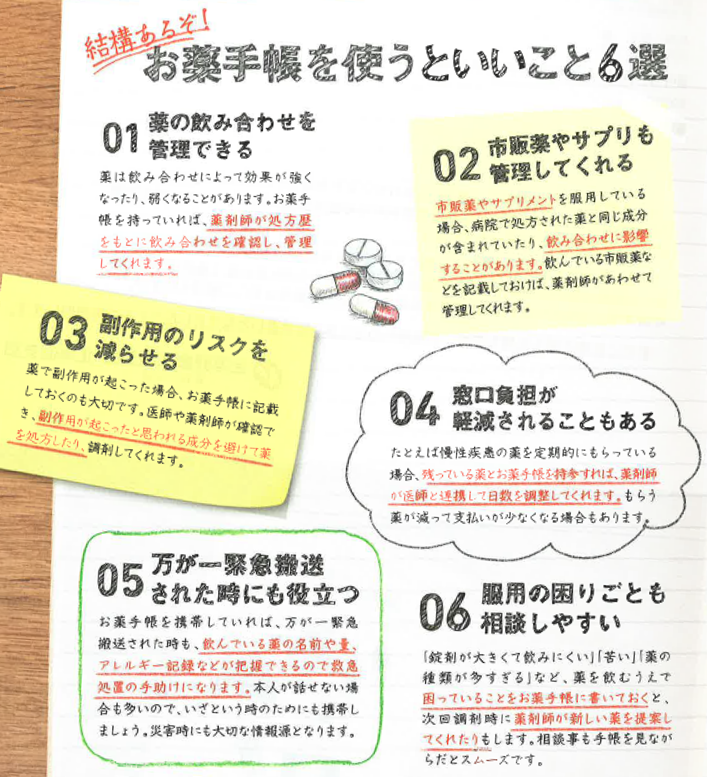 結構あるぞ!
お薬手帳を使うといいこと6選
01 薬の飲み合わせを
管理できる
薬は飲み合わせによって効果が強く
なったり、弱くなることがあります。お薬手
帳を持っていれば、薬剤師が処方歴
をもとに飲み合わせを確認し、管理
してくれます。
02 市販薬やサプリも
管理してくれる
市販薬やサプリメントを服用している
場合、病院で処方された薬と同じ成分
が含まれていたり、飲み合わせに影響
することがあります。飲んでいる市販薬な
どを記載しておけば、薬剤師があわせて
管理してくれます。
03 副作用のリスクを
減らせる
薬で副作用が起こった場合、お薬手帳に記載
しておくのも大切です。医師や薬剤師が確認で
き、副作用が起こったと思われる成分を避けて薬
を処方したり、調剤してくれます。
04 窓口負担が
軽減されることもある
たとえば慢性疾患の薬を定期的にもらっている
場合、残っている薬とお薬手帳を持参すれば、薬剤師
が医師と連携して日数を調整してくれます。もらう
薬が減って支払いが少なくなる場合もあります。
05 万が一緊急搬送
された時にも役立つ
お薬手帳を携帯していれば、万が一緊急
搬送された時も、飲んでいる薬の名前や量、
アレルギー記録などが把握できるので救急
処置の手助けになります。本人が話せない場
合も多いので、いざという時のためにも携帯し
ましょう。災害時にも大切な情報源となります。
06 服用の困りごとも
相談しやすい
「錠剤が大きくて飲みにくい」「苦い」「薬の
種類が多すぎる」など、薬を飲むうえで
困っていることをお薬手帳に書いておくと、
次回調剤時に薬剤師が新しい薬を提案し
てくれたりもします。相談事も手帳を見なが
らだとスムーズです。